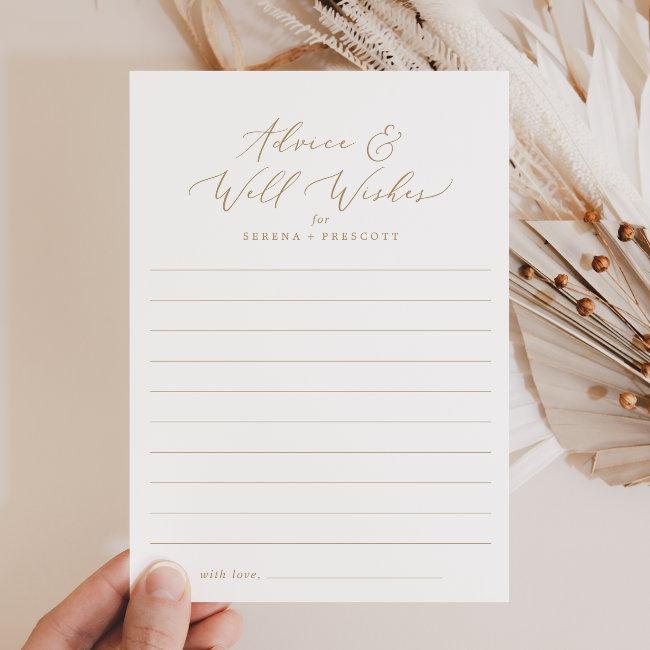 Advice &
Well Wishes
for
SERENA + PRESCOTT
with love,